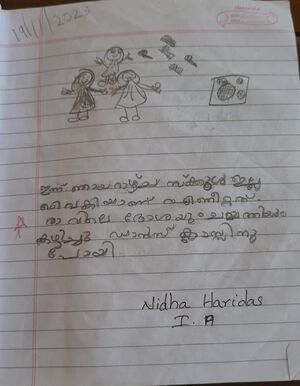 19/1/2023
ഇന്ന് ഞായറാഴ്ച സ്ക്കൂൾ ഇല്ല
വൈകിയാണ് എണീറ്റത്
രാവിലെ ദോശയും ചമ്മന്തിയും
കഴിച്ചു ഡാൻസ് ക്ലാസ്സിനു
പോയി
Nidha Haridas
I. A